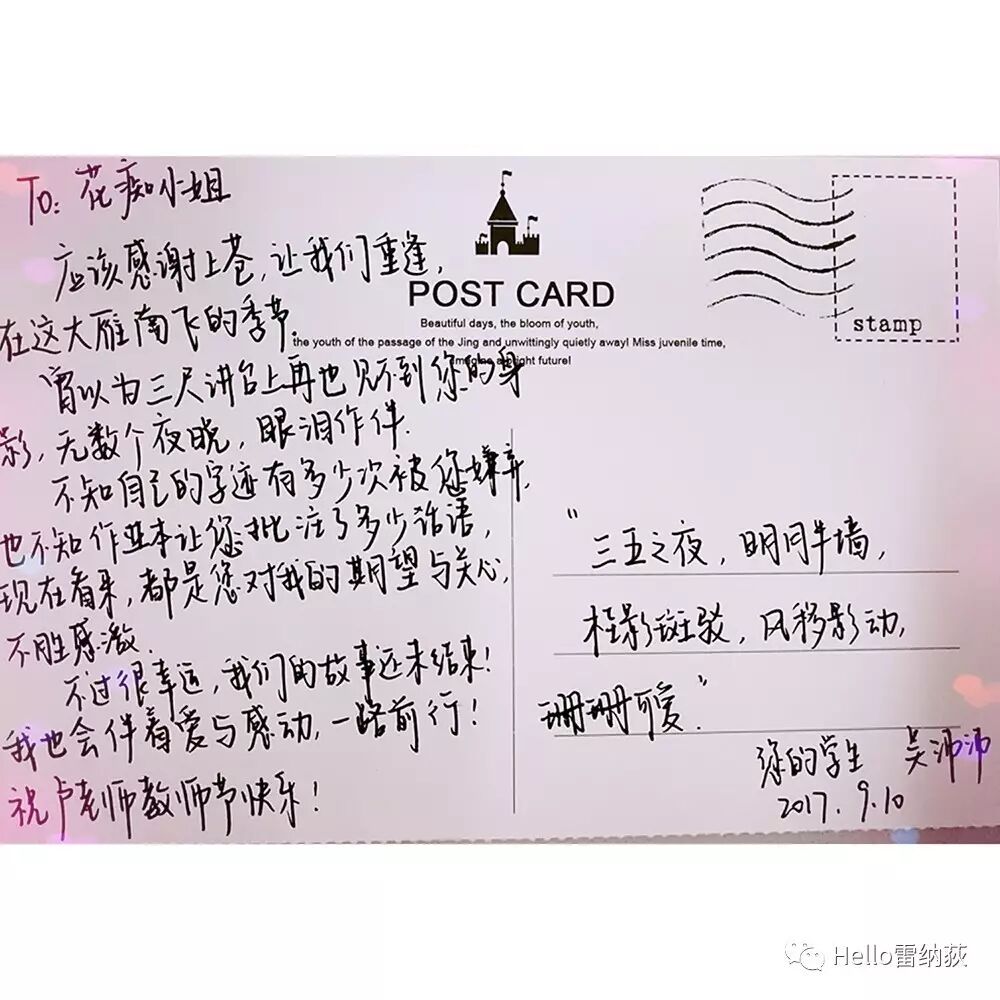 To: 花痴小姐
应该感谢上苍,让我们重逢,
在这大雁南飞的季节.
曾以为三尺讲台上再也见不到您的身
影,无数个夜晚,眼泪作伴.
不知自己的字迹有多少次被您嫌弃,
也不知作业本让您批注了多少话语,
现在看来,都是您对我的期望与关心,
不胜感激.
不过很幸运,我们的故事还未结束!
我也会伴着爱与感动,一路前行!
祝卢老师教师节快乐!
POST CARD
Beautiful days, the bloom of youth,
the youth of the passage of the Jing and unwittingly quietly away! Miss juvenile time,
imagine a bright future!
stamp
"三五之夜,明月半墙,
桂影斑驳,风移影动,
珊珊可爱."
您的学生 吴沛沛
2017.9.10
Hello雷纳荻